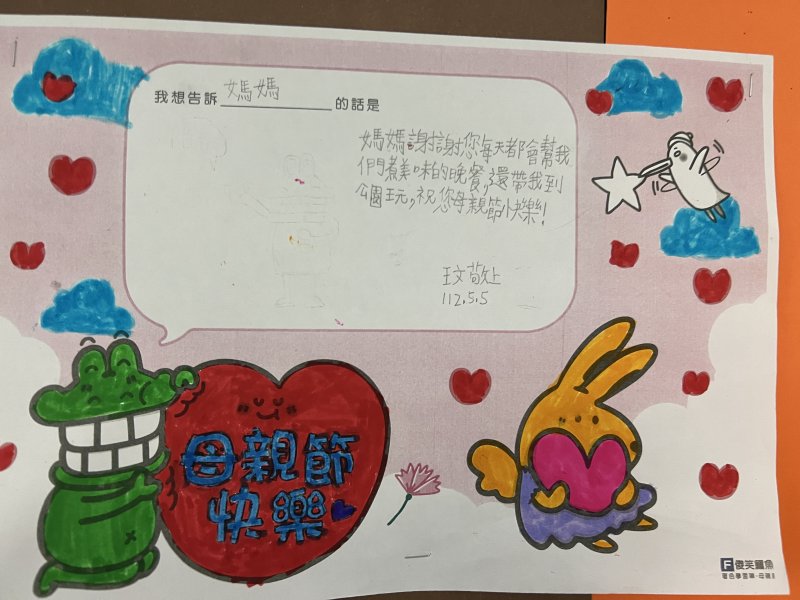 我想告訴 媽媽 的話是
媽媽謝謝您每天都會幫我
們煮美味的晚餐,還帶我到
公園玩,祝您母親節快樂!
王文敬上
112.5.5
母親節
快樂
F 傻笑鱷魚
著色學習單-母親